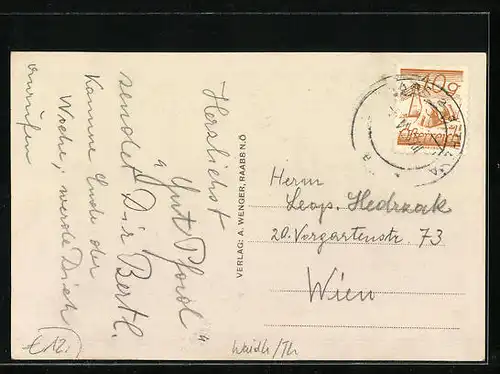 Herzlichst
"Gut Pfad"
sendet Dir Bertl.
Komme Ende der
Woche; werde Dich
anrufen
VERLAG: A. WENGER, RAABS N.Ö
Herrn
Leop. Hedrzak
20. Vorgartenstr. 73
Wien
Waidh/Th
10g